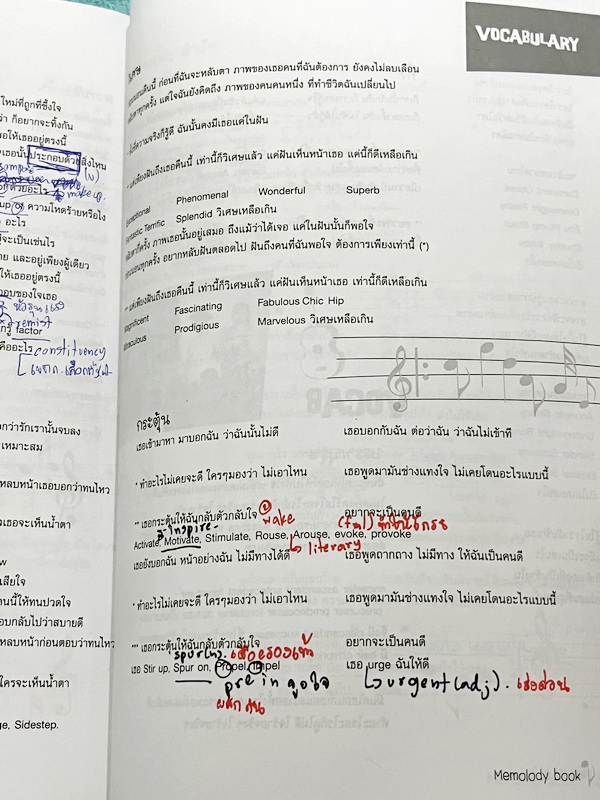 VOCABULARY
ใหม่ที่ถูกที่ซึ้งใจ
ว่า ก็อยากจะทิ้งกัน
พอให้เธออยู่ตรงนี้
เธอนั้นประกอบด้วยสิ่งไหน
ด้วยอะไร make up
up ความโหดร้ายหรือไง
อะไร
จะเป็นเช่นไร
าย และอยู่เพียงผู้เดียว
ให้เธออยู่ตรงนี้
อบของใจเธอ
กรู้ factor
คืออะไร constituency
อกว่ารักเรานั้นจบลง
เหมาะสม
หลบหน้าเธอบอกว่าทนไหว
วเธอจะเห็นน้ำตา
เสียใจ
านนี้ให้ทนปวดใจ
อบกลับไปว่าสบายดี
หลบหน้าก่อนตอบว่าทนไหว
ใครจะเห็นน้ำตา
ge, Sidestep.
วิเศษ
คืนนี้ ก่อนที่ฉันจะหลับตา ภาพของเธอคนที่ฉันต้องการ ยังคงไม่ลบเลือน
ทุกครั้ง แต่ใจฉันยังคิดถึง ภาพของคนคนหนึ่ง ที่ทำชีวิตฉันเปลี่ยนไป
ความจริงก็รู้ดี ฉันนั้นคงมีเธอแค่ในฝัน
แค่เพียงฝันถึงเธอคืนนี้ เท่านี้ก็วิเศษแล้ว แค่ฝันเห็นหน้าเธอ แค่นี้ก็ดีเหลือเกิน
Exceptional Phenomenal Wonderful Superb
Fantastic Terrific Splendid วิเศษเหลือเกิน
ทุกครั้ง ภาพเธอนั้นอยู่เสมอ ถึงแม้ว่าได้เจอ แค่ในฝันนั้นก็พอใจ
ทุกครั้ง อยากหลับฝันตลอดไป ฝันถึงคนที่ฉันพอใจ ต้องการเพียงเท่านี้ (*)
** แค่เพียงฝันถึงเธอคืนนี้ เท่านี้ก็วิเศษแล้ว แค่ฝันเห็นหน้าเธอ เท่านี้ก็ดีเหลือเกิน
Magnificent Fascinating Fabulous Chic Hip
Miraculous Prodigious Marvelous วิเศษเหลือเกิน
กระตุ้น
เธอเข้ามาหา มาบอกฉัน ว่าฉันนั้นไม่ดี เธอบอกกับฉัน ต่อว่าฉัน ว่าฉันไม่เข้าที
* ทำอะไรไม่เคยจะดี ใครๆมองว่า ไม่เอาไหน เธอพูดมามันช่างแทงใจ ไม่เคยโดนอะไรแบบนี้
** เธอกระตุ้นให้ฉันกลับตัวกลับใจ wake อยากจะเป็นคนดี
inspire
Activate, Motivate, Stimulate, Rouse, Arouse, evoke, provoke
literary
เธอยังบอกฉัน หน้าอย่างฉัน ไม่มีทางได้ดี เธอพูดถากถาง ไม่มีทาง ให้ฉันเป็นคนดี
* ทำอะไรไม่เคยจะดี ใครๆมองว่า ไม่เอาไหน เธอพูดมามันช่างแทงใจ ไม่เคยโดนอะไรแบบนี้
*** เธอกระตุ้นให้ฉันกลับตัวกลับใจ อยากจะเป็นคนดี
spur(n).
เธอ Stir up, Spur on, Propel, Impel เธอ urge ฉันให้ดี
pre in จูงใจ urgent(adj). เร่งด่วน
ผลักดัน
Memolody book